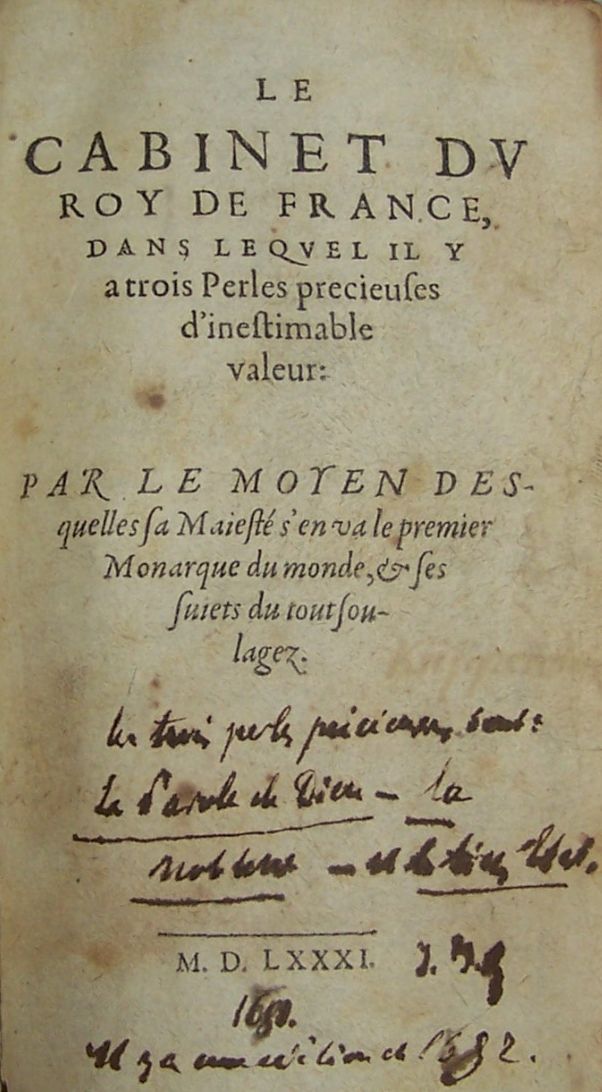 LE
CABINET DV
ROY DE FRANCE,
DANS LEQVEL IL Y
a trois Perles precieuſes
d'ineſtimable
valeur:
PAR LE MOYEN DES-
quelles ſa Maieſté s'en va le premier
Monarque du monde, & ſes
ſuiets du tout ſou-
lagez.
les trois perles précieuses sont:
la Parole de Dieu – la
noblesse – et le tiers Etat.
M. D. LXXXI.
Il y a une edition de 1682.